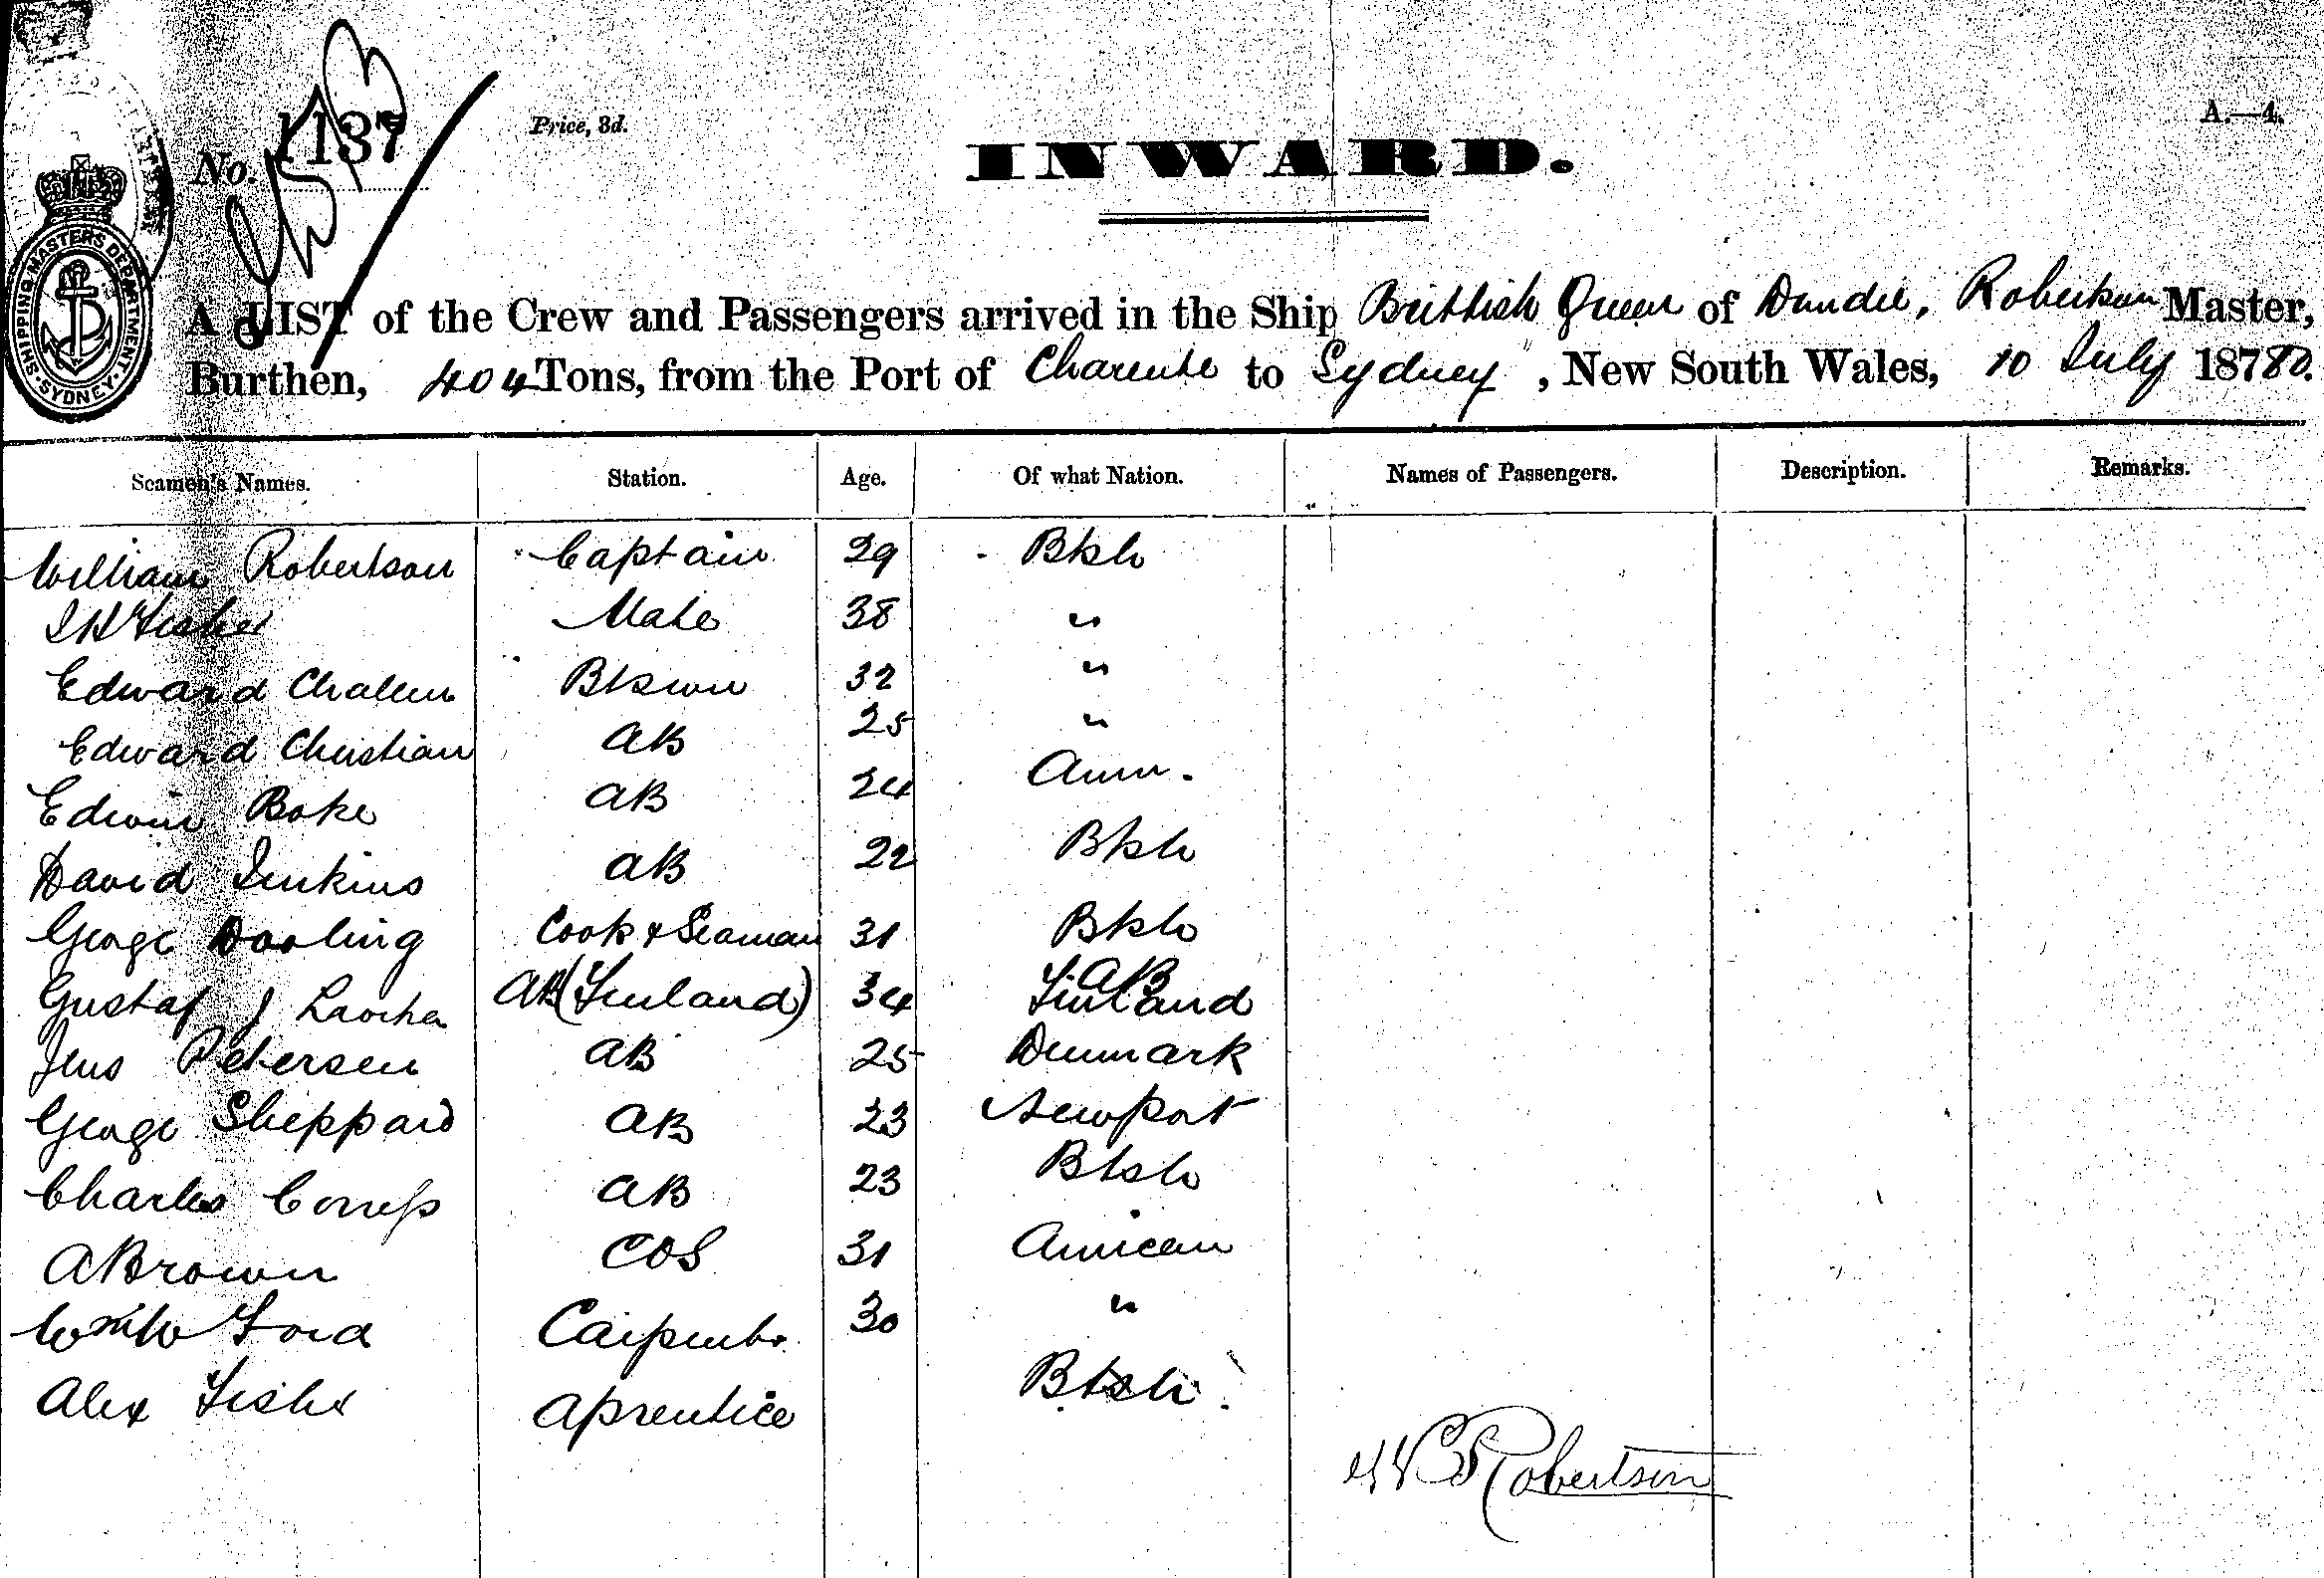 SHIPPING MASTERS DEPARTMENT. SYDNEY.
No. 1137
Price, 3d.
A.—4.
INWARD.
A LIST of the Crew and Passengers arrived in the Ship Brittish Queen of Dundee, Robertson Master,
Burthen, 404 Tons, from the Port of Charente to Sydney, New South Wales, 10 July 18780.
Seamen's Names. Station. Age. Of what Nation. Names of Passengers. Description. Remarks.
William Robertson Captain 29 Btsh
Fisher Mate 38 "
Edward Challen Btswn 32 "
Edward Christian AB 25 "
Edwin Boke AB 24 Amr.
David Jenkins AB 22 Btsh
George Dooling Cook & Seaman 31 Btsh
Gustaf J AB (Finland) 34 AB Finland
Jens Petersen AB 25 Denmark
George Sheppard AB 23 Newport
Charles AB 23 Btsh
A Brown COS 31 Amrican
Ford Carpentr 30 "
Alex Fisher Aprentice Btsh
Robertson